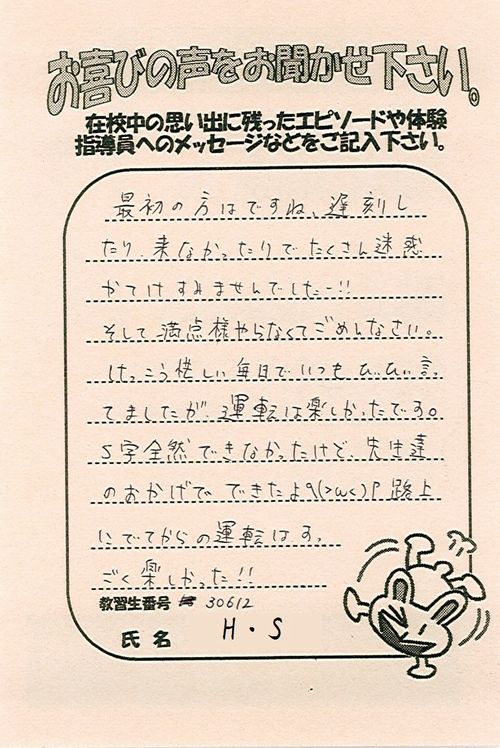 お喜びの声をお聞かせ下さい。
在校中の思い出に残ったエピソードや体験
指導員へのメッセージなどをご記入下さい。
最初の方はですね、遅刻し
たり、来なかったりでたくさん迷惑
かてけすみませんでしたー!!
そして満点様やらなくてごめんなさい。
けっこう忙しい毎日でいつもひぃひぃ言っ
てましたが、運転は楽しかったです。
S字全然できなかったけど、先生達
のおかげで できたよ٩(>ω<)۶ 路上
にでてからの運転はすっ
ごく楽しかった!!
教習生番号 30612
氏名 H・S